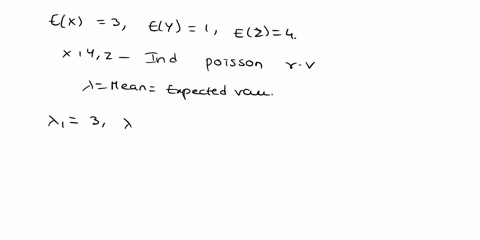 E(X) = 3, E(Y) = 1, E(Z) = 4.
X, Y, Z - Ind poisson r.v
λ = Mean = Expected valu.
λ₁ = 3, λ